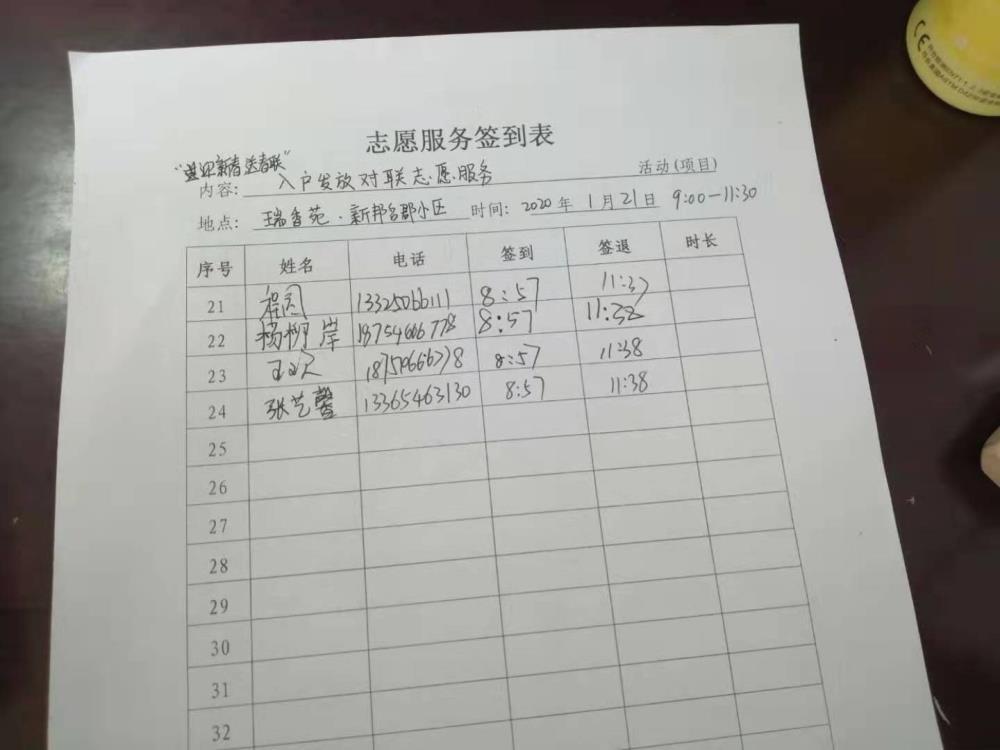 志愿服务签到表
"喜迎新春送春联"
内容: 入户发放对联志愿服务 活动(项目)
地点: 瑞香苑·新邦名郡小区 时间: 2020年1月21日 9:00-11:30
序号 姓名 电话 签到 签退 时长
21 13325066111 8:57 11:37
22 杨柳岸 18754666778 8:57 11:38
23 8:57 11:38
24 张艺馨 13365463130 8:57 11:38
25
26
27
28
29
30
31
32